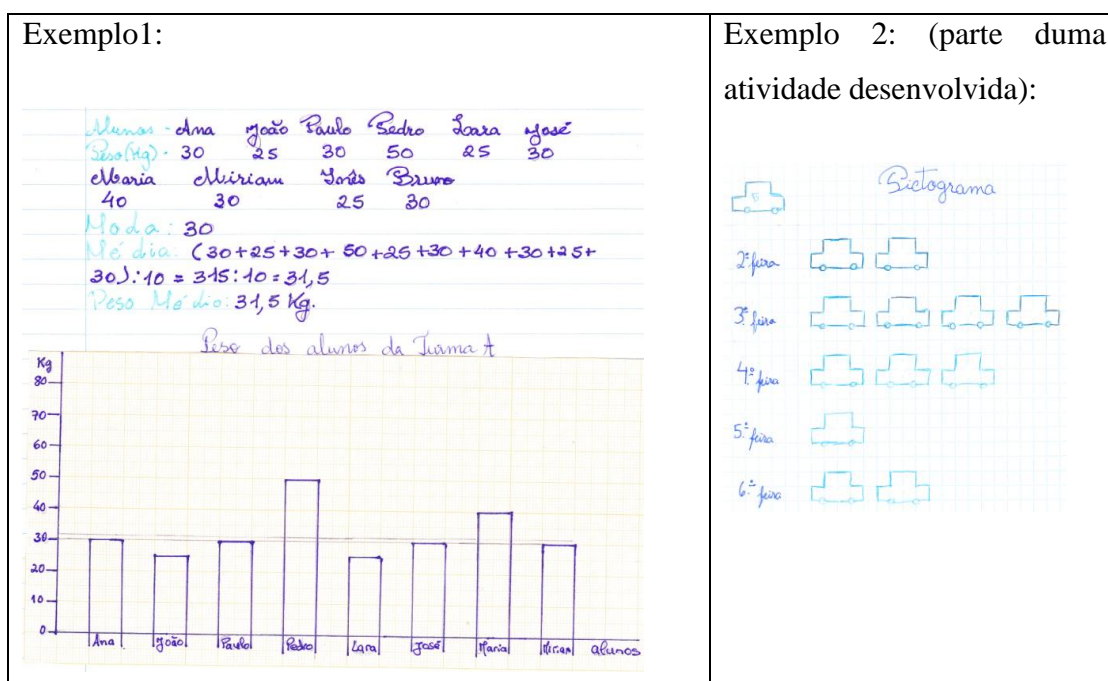 Exemplo1:
Alunos - Ana João Paulo Pedro Lara José
Peso(Kg) - 30 25 30 50 25 30
Maria Miriam Inês Bruno
40 30 25 30
Moda: 30
Média: (30+25+30+50+25+30+40+30+25+
30):10 = 315:10=31,5
Peso Médio: 31,5 Kg.
Peso dos alunos da Turma A
Kg
80
70
60
50
40
30
20
10
0
Ana João Paulo Pedro Lara José Maria Miriam alunos
Exemplo 2: (parte duma
atividade desenvolvida):
Pictograma
5
2ª feira
3ª feira
4ª feira
5ª feira
6ª feira